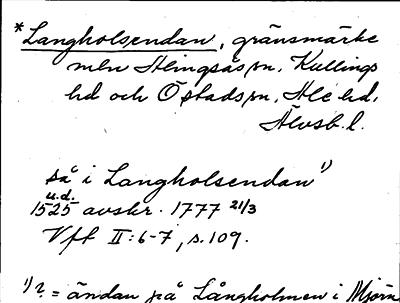 *Langholsendan, gränsmärke
mln Alingsås sn, Kullings
hd och Östads sn, Ale hd,
Älvsb. l.
så i Langholsendan 1)
u.d.
1525 avskr. 1777 21/3
Vft II:6-7, s. 109.
1) ? = ändan på Långholmen i Mjörn